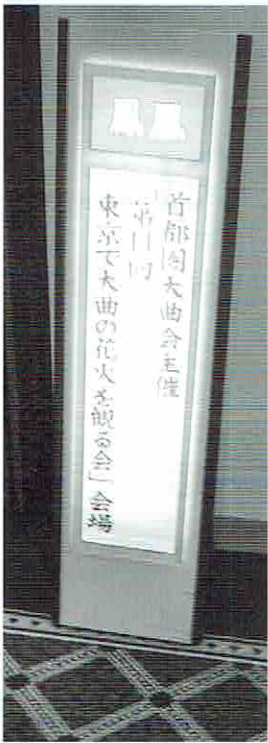 鳳凰
首都圏大曲会主催
「第11回
東京で大曲の花火を観る会」会場